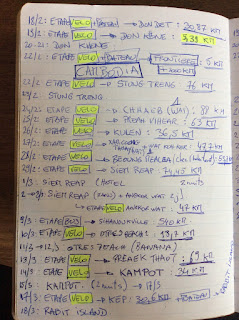 18/2: ETAPE VELO + BATEAU → DON DET : 20,87 KM
19/2: ETAPE VELO → DON KHONE : 3,39 KM
20-21: DON KHONE
22/2: ETAPE VELO + BATEAU → FRONTIERE : 5 KM
CAMBODIA
22/2: ETAPE VELO → STUNG TRENG 76 KM
23/2: STUNG TRENG
24/2: ETAPE VELO → CHHAEB (WAT) : 89 KM
25/2: ETAPE VELO → PREAH VIHEAR : 63 KM
26/2: ETAPE VELO → KULEN : 36,5 KM
27/2: ETAPE VELO → 47,2 KM
28/2: ETAPE VELO → BROUNG PEALEA
29/2: ETAPE VELO → SIEM REAP : 74,45 KM
1/3: SIEM REAP (HOTEL 2 nuits
2 → 8/3: SIEM REAP + ANGKOR WAT 2j.
→ ETAPE VELO ANGKOR WAT : 47 KM
9/3: ETAPE BUS → SIHANOUKVILLE 540 KM
10/3: ETAPE VELO → OTRES BEACH : 13,7 KM
11/3 → 12/3: OTRES
13/3: ETAPE VELO → 69 KM
14/3: ETAPE VELO → KAMPOT : 34 KM
15/3: KAMPOT (2 nuits) → 17/3
17/3: ETAPE VELO → KEP : 30,6 KM + BATEAU
18/3: RABIT ISLAND
→ RABIT ISLAND